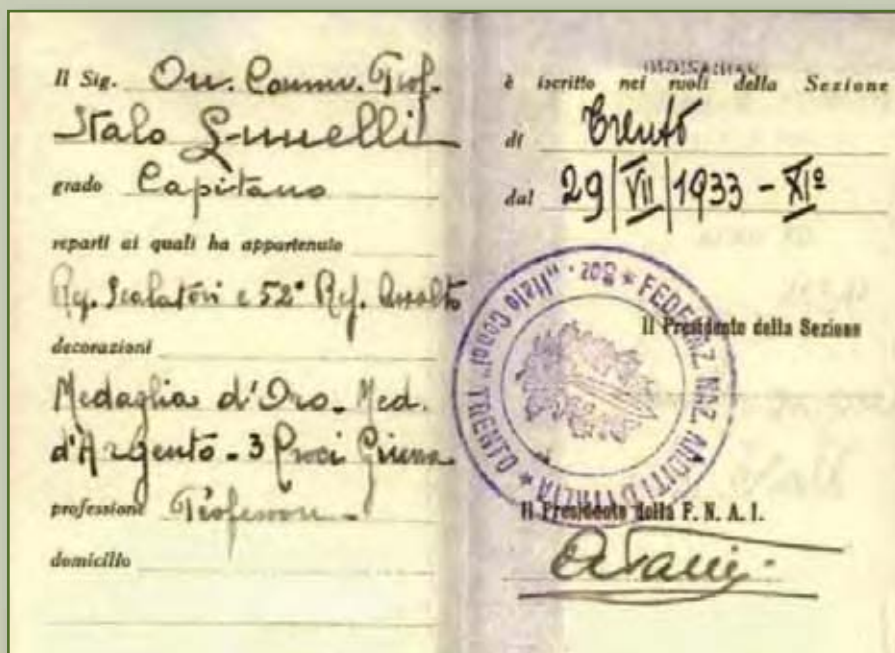 Il Sig. On. Comm. Prof.
Italo Lunelli
grado Capitano
reparti ai quali ha appartenuto
Rep. Scalatori e 52° Rep. Assalto
decorazioni
Medaglia d'Oro - Med.
d'Argento - 3 Croci Guerra
professione Professore
domicilio
è iscritto nei ruoli della Sezione
di Trento
dal 29|VII|1933 - XIº
Il Presidente della Sezione
FEDERAZ. NAZ. ARDITI D'ITALIA
TRENTO
Il Presidente della F. N. A. I.